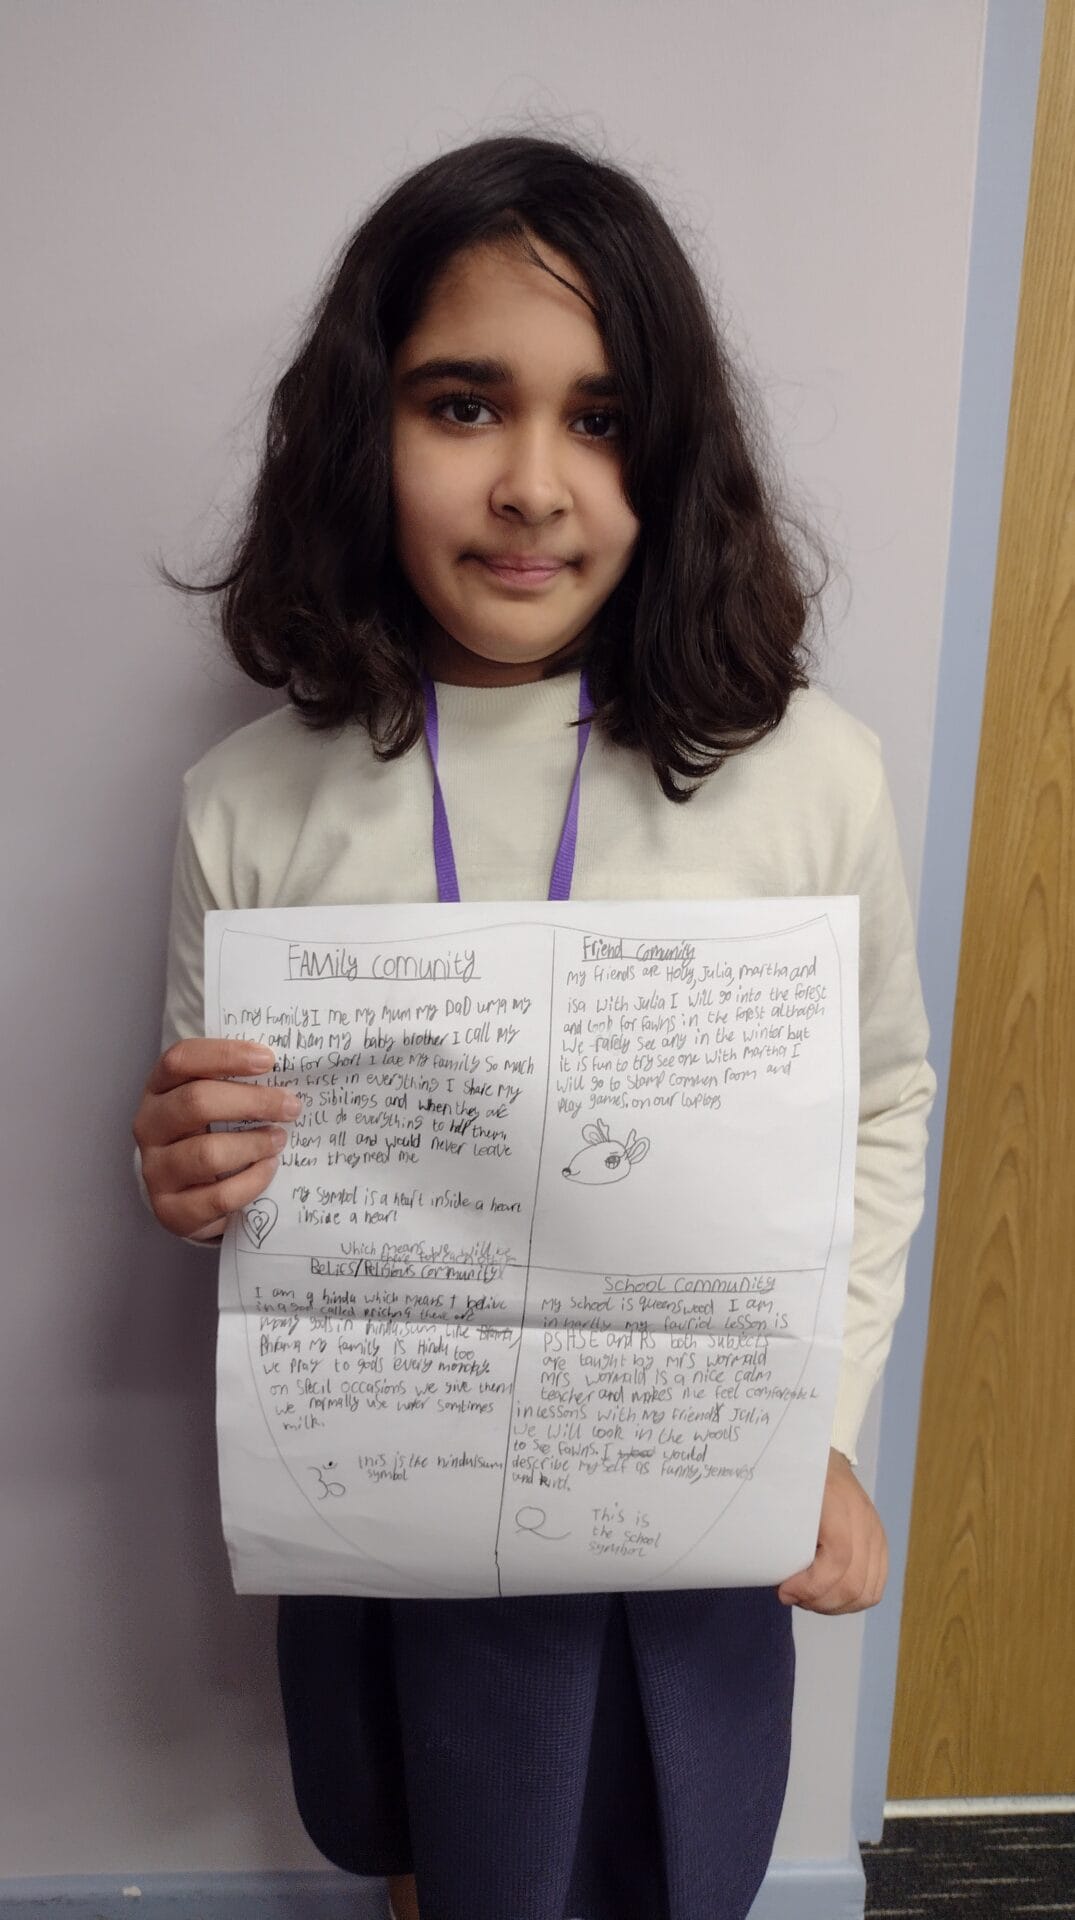 FAMily comunity
in my Family I me my mum my DaD uma my
and kian my baby brother I call my
for short I love my family so much
them first in everything I share my
my sibilings and when they are
will do everything to help them,
them all and would never leave
when they need me
my symbol is a heart inside a heart
inside a heart
which means we will be
there for each other
Friend comunity
my friends are Holly, Julia, martha and
isa with Julia I will go into the forest
and look for fawns in the forest although
we rarely see any in the winter but
it is fun to try see one with martha I
will go to Stamp common room and
play games. on our laptops
Belics/Religious community
I am a hindu which means I belive
in a god called krishna there are
many gods in hinduisum like
my family is Hindu too
we pray to gods every monday.
on specil occasions we give them
we normally use water somtimes
milk.
this is the hinduisum
symbol
School Community
my school is queenswood I am
in hartly my favriot lesson is
PSHSE and RS both subjects
are taught by mrs wormald
mrs wormald is a nice calm
teacher and makes me feel
in lessons with my friend Julia
we will look in the woods
to see fawns. I would
describe myself as funny,
and kind.
This is
the school
symbol